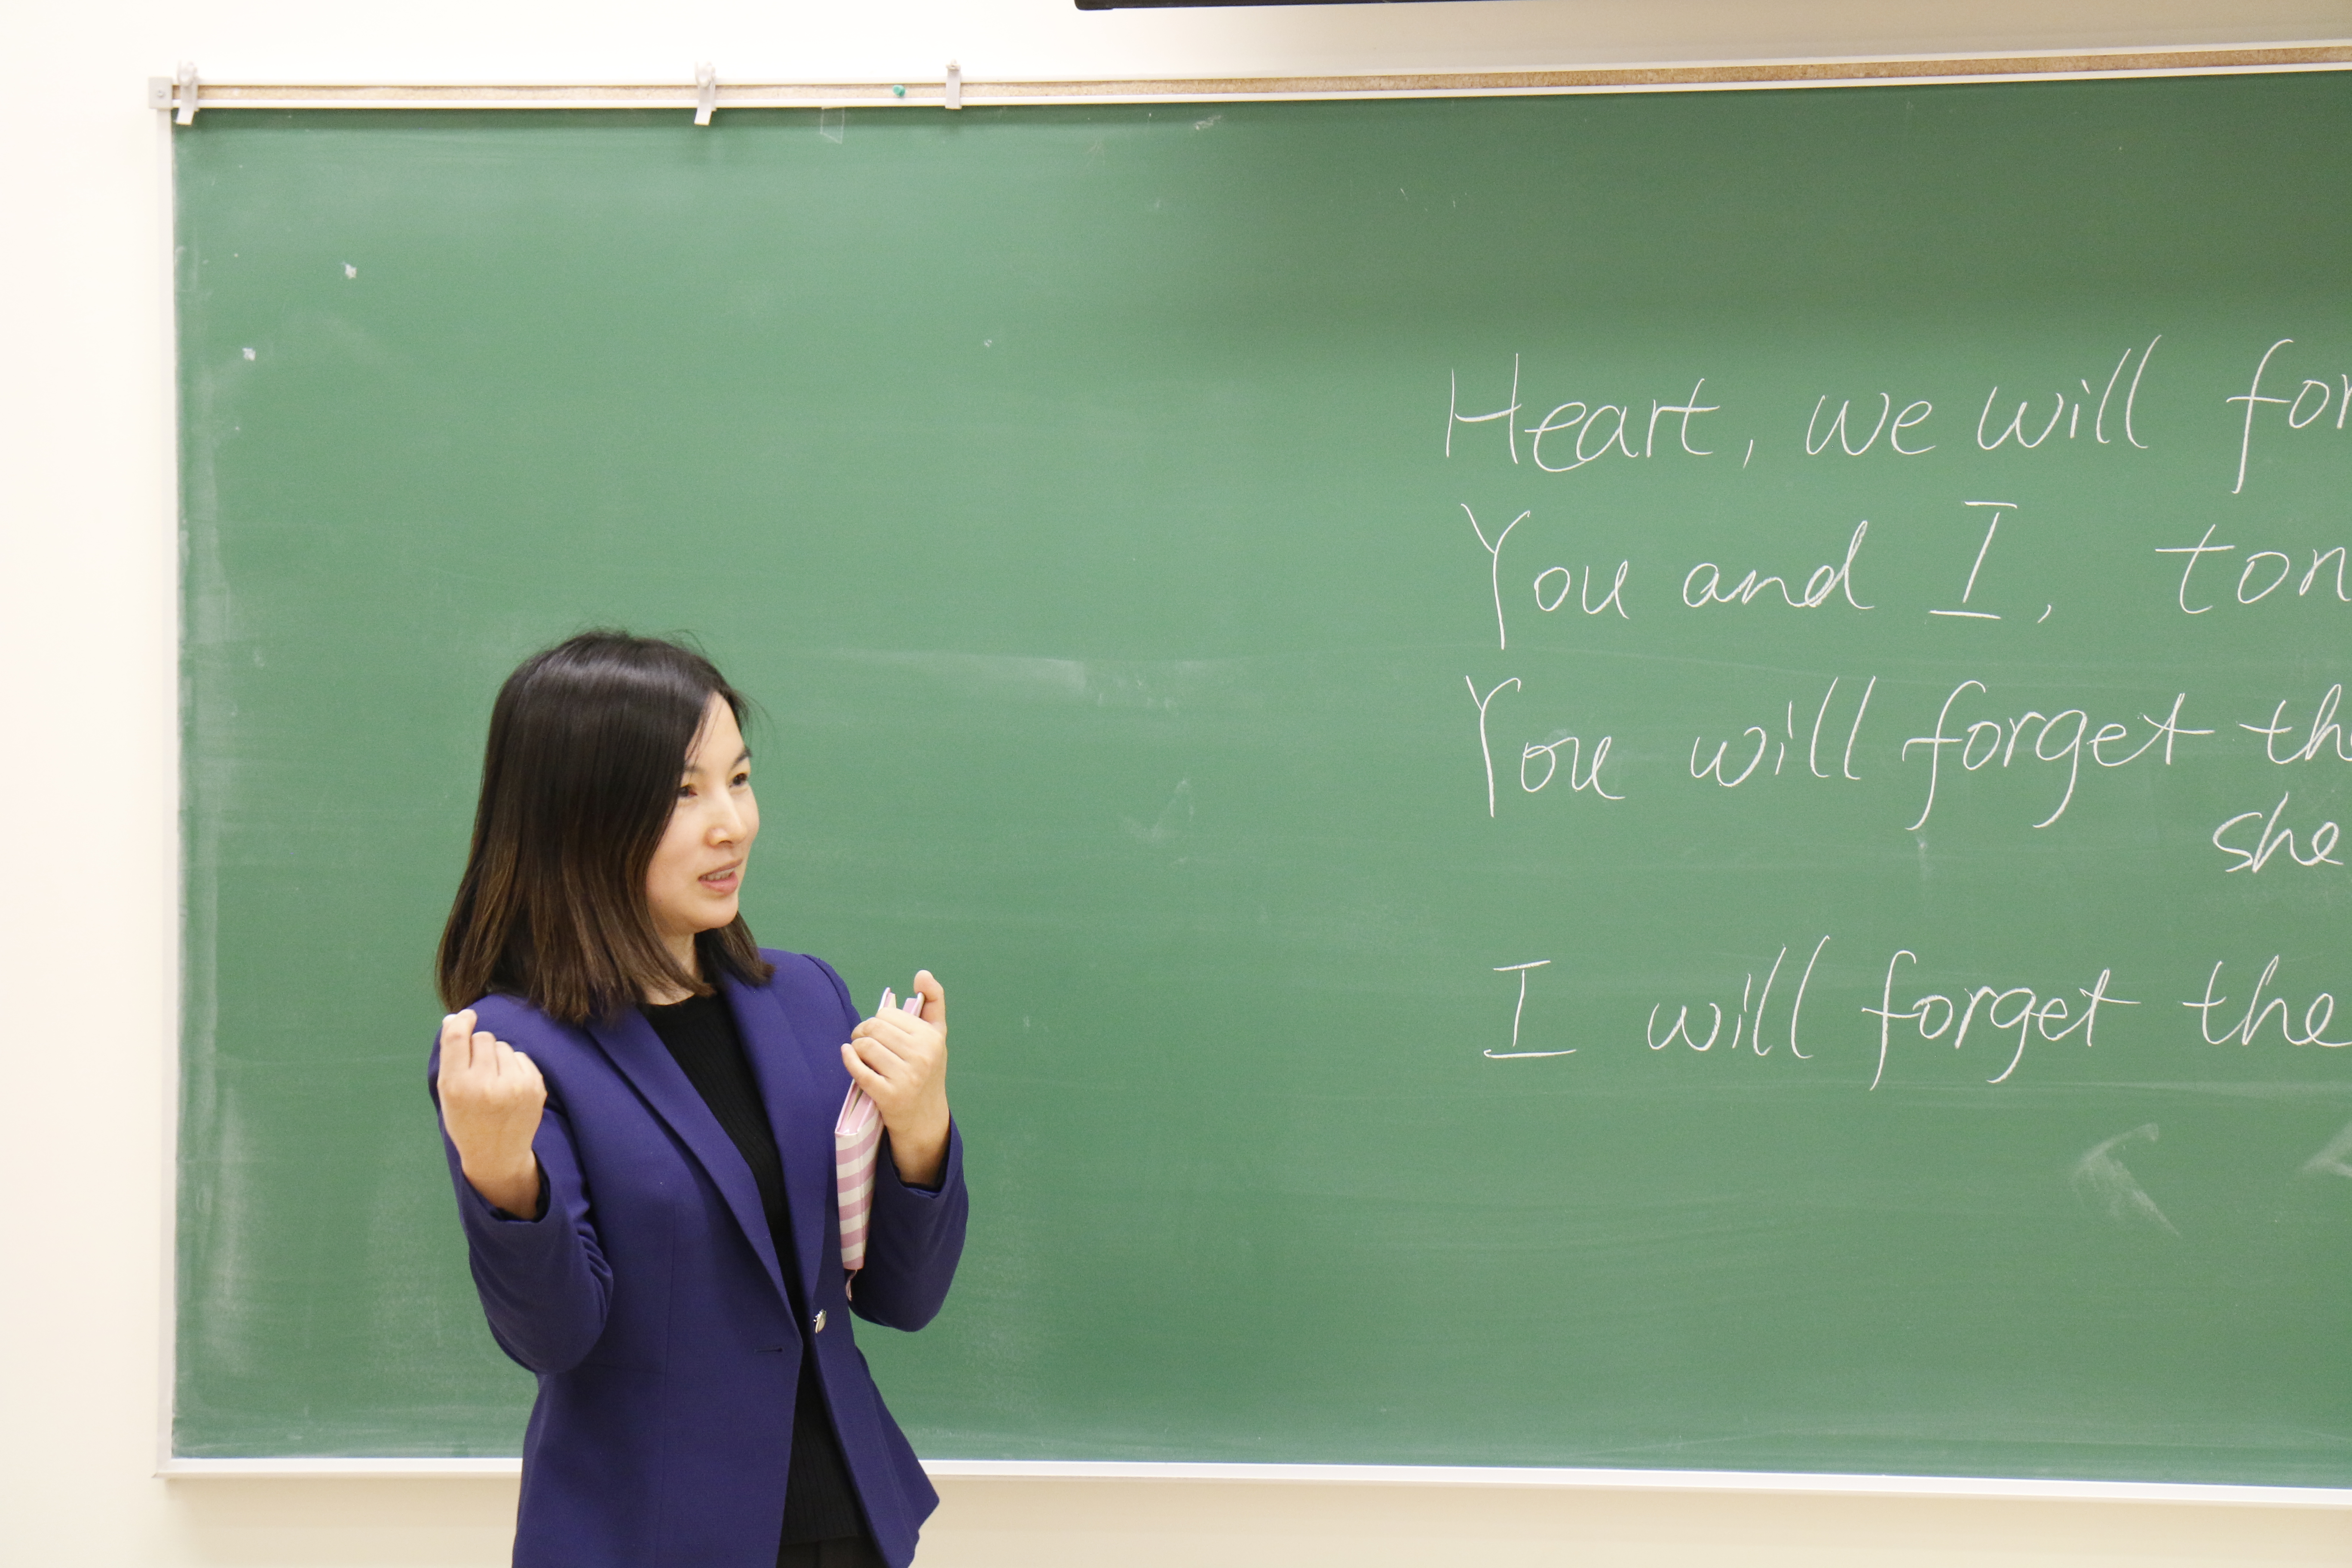 Heart, we will for
You and I, ton
You will forget the
she
I will forget the